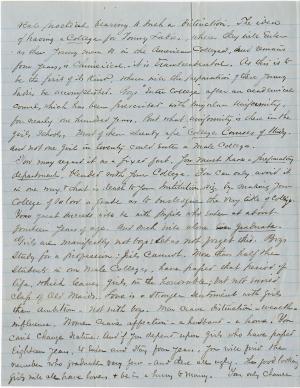 that practical bearing to such a distinction. The idea
of having a College for Young Ladies, where they will enter
as their Young men do in the American Colleges, and remain
four years, is Chimerical. It is
be the first of its kind, where will the preparation of these Young
Ladies be accomplished. Boys enter College after an academical
course, which has been prescribed with singular uniformity,
for nearly one hundred years. But what uniformity is there in the
girls Schools. Most of them
and not one girl in twenty could enter a Male College.
You may regard it as a fixed fact, You must have a preparatory
department, blended with your College. You can only avoid it
in one way & that is death to your Institution, viz. by making your
College of so low a grade as to
Your great success will be with pupils who enter at about
fourteen years of age. And such will alone ever graduate.
Girls are manifestly not boys: let us not forget this. Boys
Study for a profession: girls Cannot. More than half the
Students in our Male Colleges, have passed that period of
life, which leaves girls in the honorable, but not
class of Old Maids. Love is a stronger sentiment with girls
than ambition. Not with boys. Men crave distinction, wealth,
influence. Women crave affection - a husband - a home. You
can't change Nature. And if you depend upon girls who have passed
Eighteen years, to enter and stay four years, you will find the
number who graduate very few - and these are ugly. The good looking
girls will all have lovers & be in a hurry to marry. Your only Chance